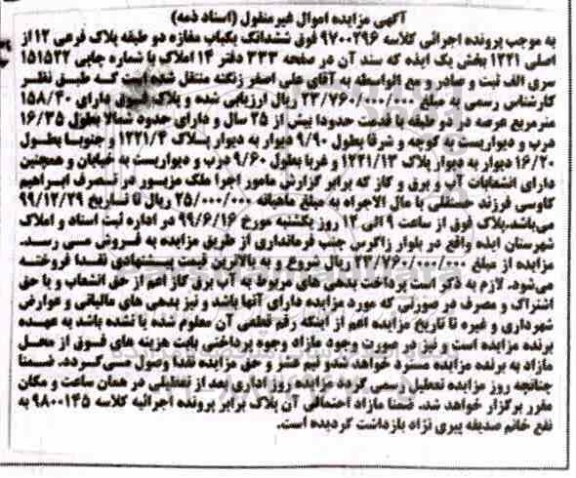 آگهی مزایده اموال غیرمنقول (اسناد ذمه)
به موجب پرونده اجرائی کلاسه ۹۷۰۰۲۹۶ فوق ششدانگ یکباب مغازه دو طبقه پلاک فرعی ۱۲ از
اصلی ۱۲۲۱ بخش یک ایذه که سند آن در صفحه ۳۳۳ دفتر ۱۴ املاک با شماره چاپی ۱۵۱۵۲۲
سری الف ثبت و صادر و مع الواسطه به آقای علی اصغر زنگنه منتقل شده است که طبق نظر
کارشناس رسمی به مبلغ ۲۳/۷۶۰/۰۰۰/۰۰۰ ریال ارزیابی شده و پلاک فوق دارای ۱۵۸/۴۰
مترمربع عرصه در دو طبقه با قدمت حدودا بیش از ۲۵ سال و دارای حدود شمالا بطول ۱۶/۳۵
درب و دیواریست به کوچه و شرقا بطول ۹/۹۰ دیوار به دیوار پلاک ۱۲۲۱/۴ و جنوبا بطول
۱۶/۲۰ دیوار به دیوار پلاک ۱۲۲۱/۱۳ و غربا بطول ۹/۶۰ درب و دیواریست به خیابان و همچنین
دارای انشعابات آب و برق و گاز که برابر گزارش مامور اجرا ملک مزبور در تصرف ابراهیم
کاوسی فرزند حسنقلی با مال الاجراه به مبلغ ماهیانه ۲۵/۰۰۰/۰۰۰ ریال تا تاریخ ۹۹/۱۲/۲۹
می‌باشد.پلاک فوق از ساعت ۹ الی ۱۲ روز یکشنبه مورخ ۹۹/۶/۱۶ در اداره ثبت اسناد و املاک
شهرستان ایذه واقع در بلوار زاگرس جنب فرمانداری از طریق مزایده به فروش می رسد.
مزایده از مبلغ ۲۳/۷۶۰/۰۰۰/۰۰۰ ریال شروع و به بالاترین قیمت پیشنهادی نقدا فروخته
می‌شود. لازم به ذکر است پرداخت بدهی های مربوط به آب برق گاز اعم از حق انشعاب و یا حق
اشتراک و مصرف در صورتی که مورد مزایده دارای آنها باشد و نیز بدهی های مالیاتی و عوارض
شهرداری و غیره تا تاریخ مزایده اعم از اینکه رقم قطعی آن معلوم شده یا نشده باشد به عهده
برنده مزایده است و نیز در صورت وجود مازاد وجوه پرداختی بابت هزینه های فوق از محل
مازاد به برنده مزایده مسترد خواهد شد و نیم عشر و حق مزایده نقدا وصول می‌گردد. ضمنا
چنانچه روز مزایده تعطیل رسمی گردد مزایده روز اداری بعد از تعطیلی در همان ساعت و مکان
مقرر برگزار خواهد شد. ضمنا مازاد احتمالی آن پلاک برابر پرونده اجرائیه کلاسه ۹۸۰۰۱۴۵ به
نفع خانم صدیقه پیری نژاد بازداشت گردیده است.